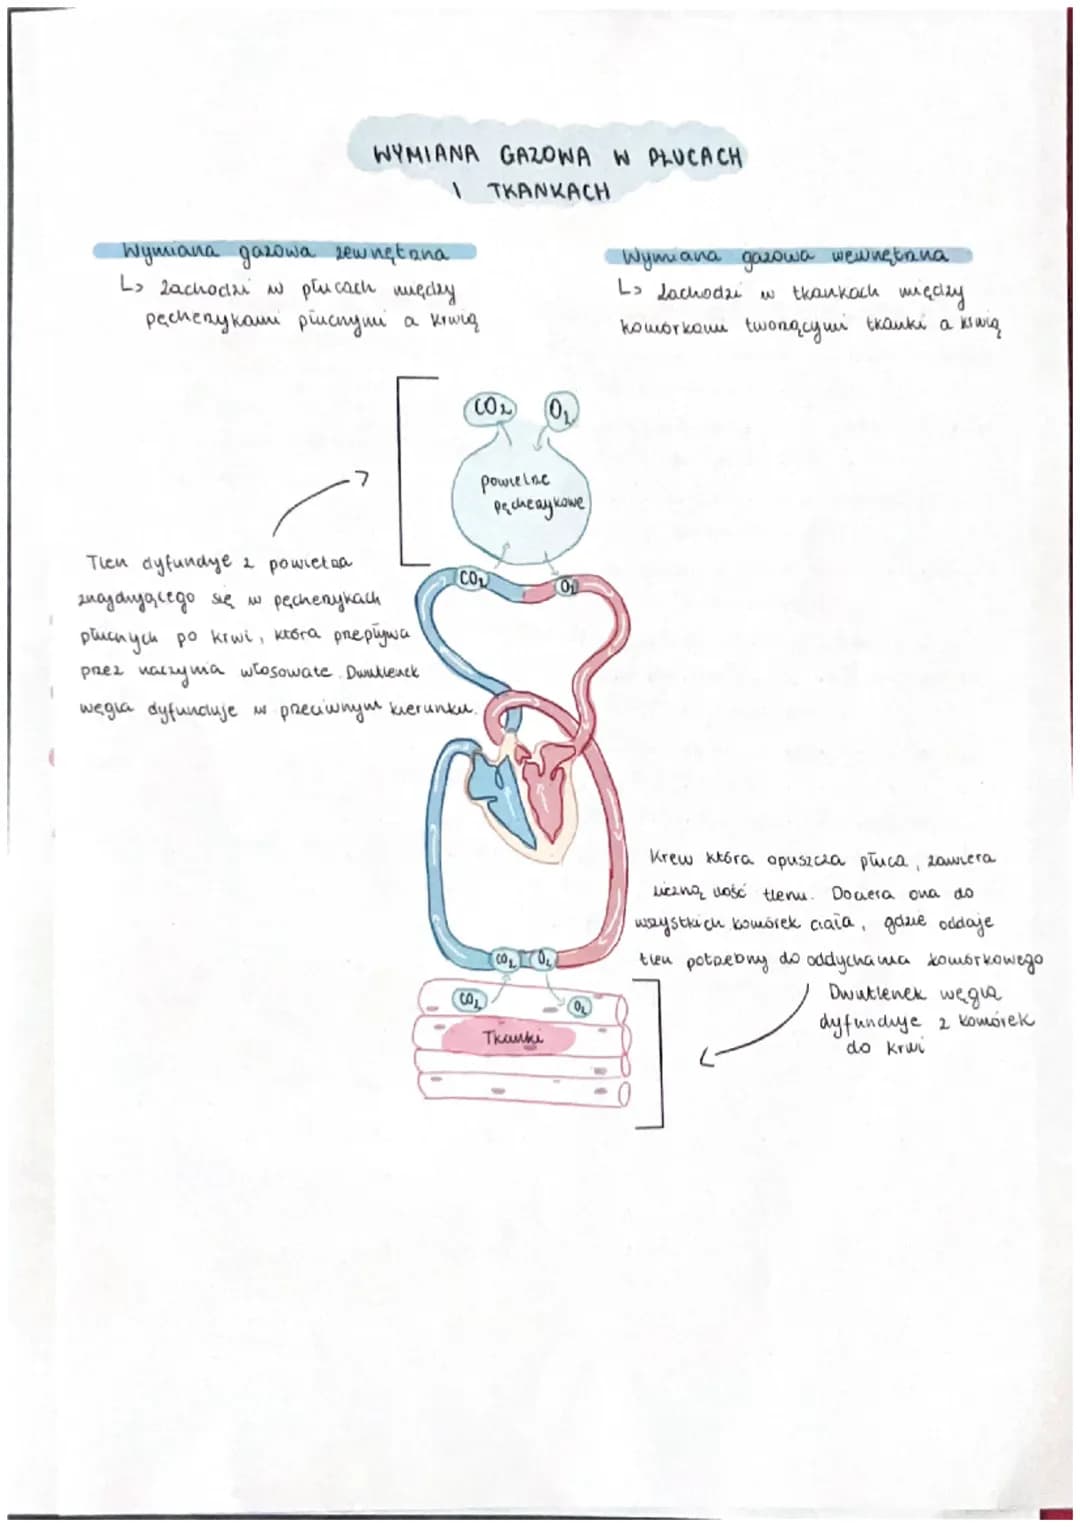 WYMIANA GAZOWA W PŁUCACH
I TKANKACH
Wymiana gazowa zewnętrzna
L> Zachodzi w płucach między
pęcherzykami płucnymi a krwią
Wymiana gazowa wewnętrzna
L> Zachodzi w tkankach między
komórkami tworzącymi tkanki a krwią
CO2 O2
powietrze
pęcherzykowe
CO2 O2
Tlen dyfunduje z powietrza
znajdującego się w pęcherzykach
płucnych po krwi, która przepływa
przez naczynia włosowate. Dwutlenek
węgla dyfunduje w przeciwnym kierunku.
Krew która opuszcza płuca, zawiera
liczną ilość tlenu. Dociera ona do
wszystkich komórek ciała, gdzie oddaje
tlen potrzebny do oddychania komórkowego
Dwutlenek węgla
dyfunduje z komórek
do krwi
CO2 O2
CO2 O2
Tkanki